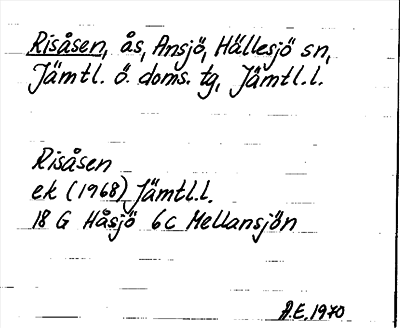 Risåsen, ås, Ansjö, Hällesjö sn,
Jämtl. ö. doms. tg, Jämtl.l.
Risåsen
ek (1968) Jämtl.l.
18 G Håsjö 6c Mellansjön
A.E. 1970